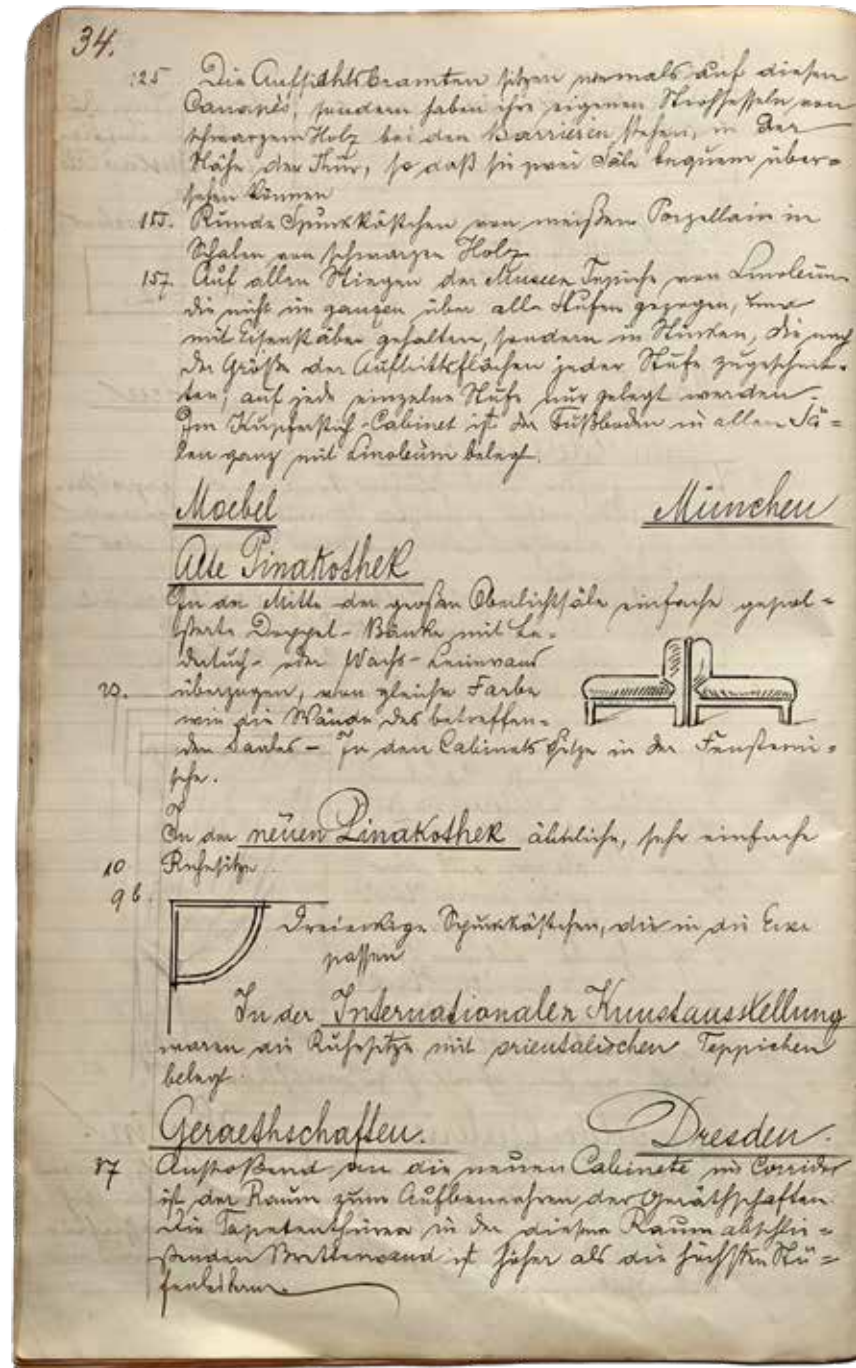 34.
125 Die Aufsichtsbeamten sitzen niemals auf diesen
Canapés, sondern haben ihre eigenen Strohsesseln von
schwarzem Holz bei den Barrièren stehen, in der
Nähe der Thür, so daß sie zwei Säle bequem über=
sehen können
155. Runde Spuckkästchen von weißem Porzellain in
Schalen von schwarzen Holz
157. Auf allen Stiegen der Museen Teppiche von Linoleum
die nicht im ganzen über alle Stufen gezogen,
mit Eisenstäben gehalten, sondern in Stücken, die nach
der Größe der Auftrittsflächen jeder Stufe zugeschnit=
ten, auf jede einzelne Stufe nur gelegt werden.
Im Kupferstich-Cabinet ist der Fußboden in allen Sä=
len ganz mit Linoleum belegt.
Moebel München
Alte Pinakothek
In der Mitte der großen Oberlichtsäle einfache gepol=
sterte Doppel-Bänke mit Le=
dertuch- oder Wachs-Leinwand
20. überzogen, von gleicher Farbe
wie die Wände des betreffen=
den Saales – In den Cabinets Sitze in der Fensterni=
sche.
In der neuen Pinakothek ähnliche, sehr einfache
10 Ruhesitze.
96.
Dreieckige Spuckkästchen, die in die Ecke
passen
In der Internationalen Kunstausstellung
waren die Ruhesitze mit orientalischen Teppichen
belegt.
Geraethschaften. Dresden.
87 Anstoßend an die neuen Cabinete im Corridor
ist der Raum zum Aufbewahren der Geräthschaften.
Die Tapetenthüren in der diesen Raum abschlie=
ßenden Bretterwand ist höher als die höchsten Stu=
fenleitern.